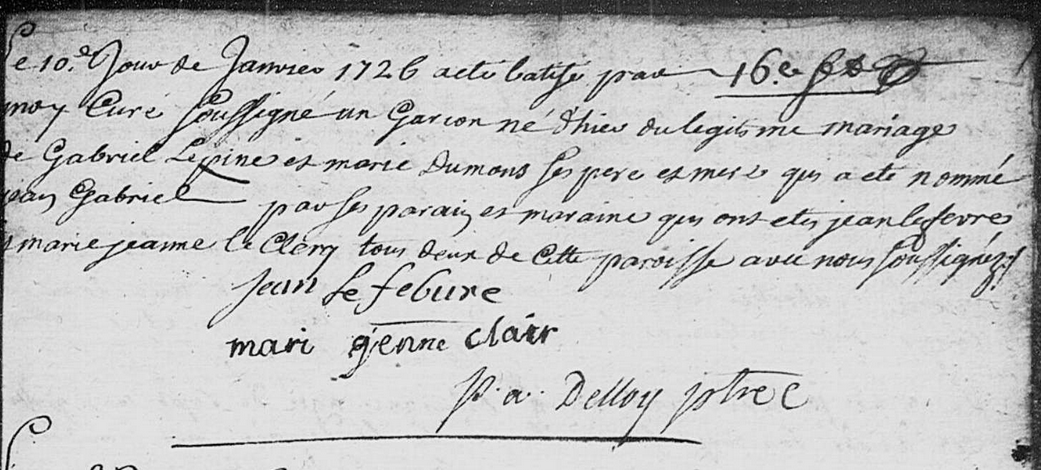 Le 10.e Jour de Janvier 1726 a eté batisé par 16.e
moy Curé soussigné un Garcon né d'hier du legitime mariage
de Gabriel Lepine et marie Dumons ses pere et mere qui a eté nommé
jean Gabriel par ses parain et maraine qui ont etes jean lefevre
et marie jeanne le Clerq tous deux de cette paroisse avec nous soussignéz
jean le febure
mari genne clair
p. a. Delloy ptre C